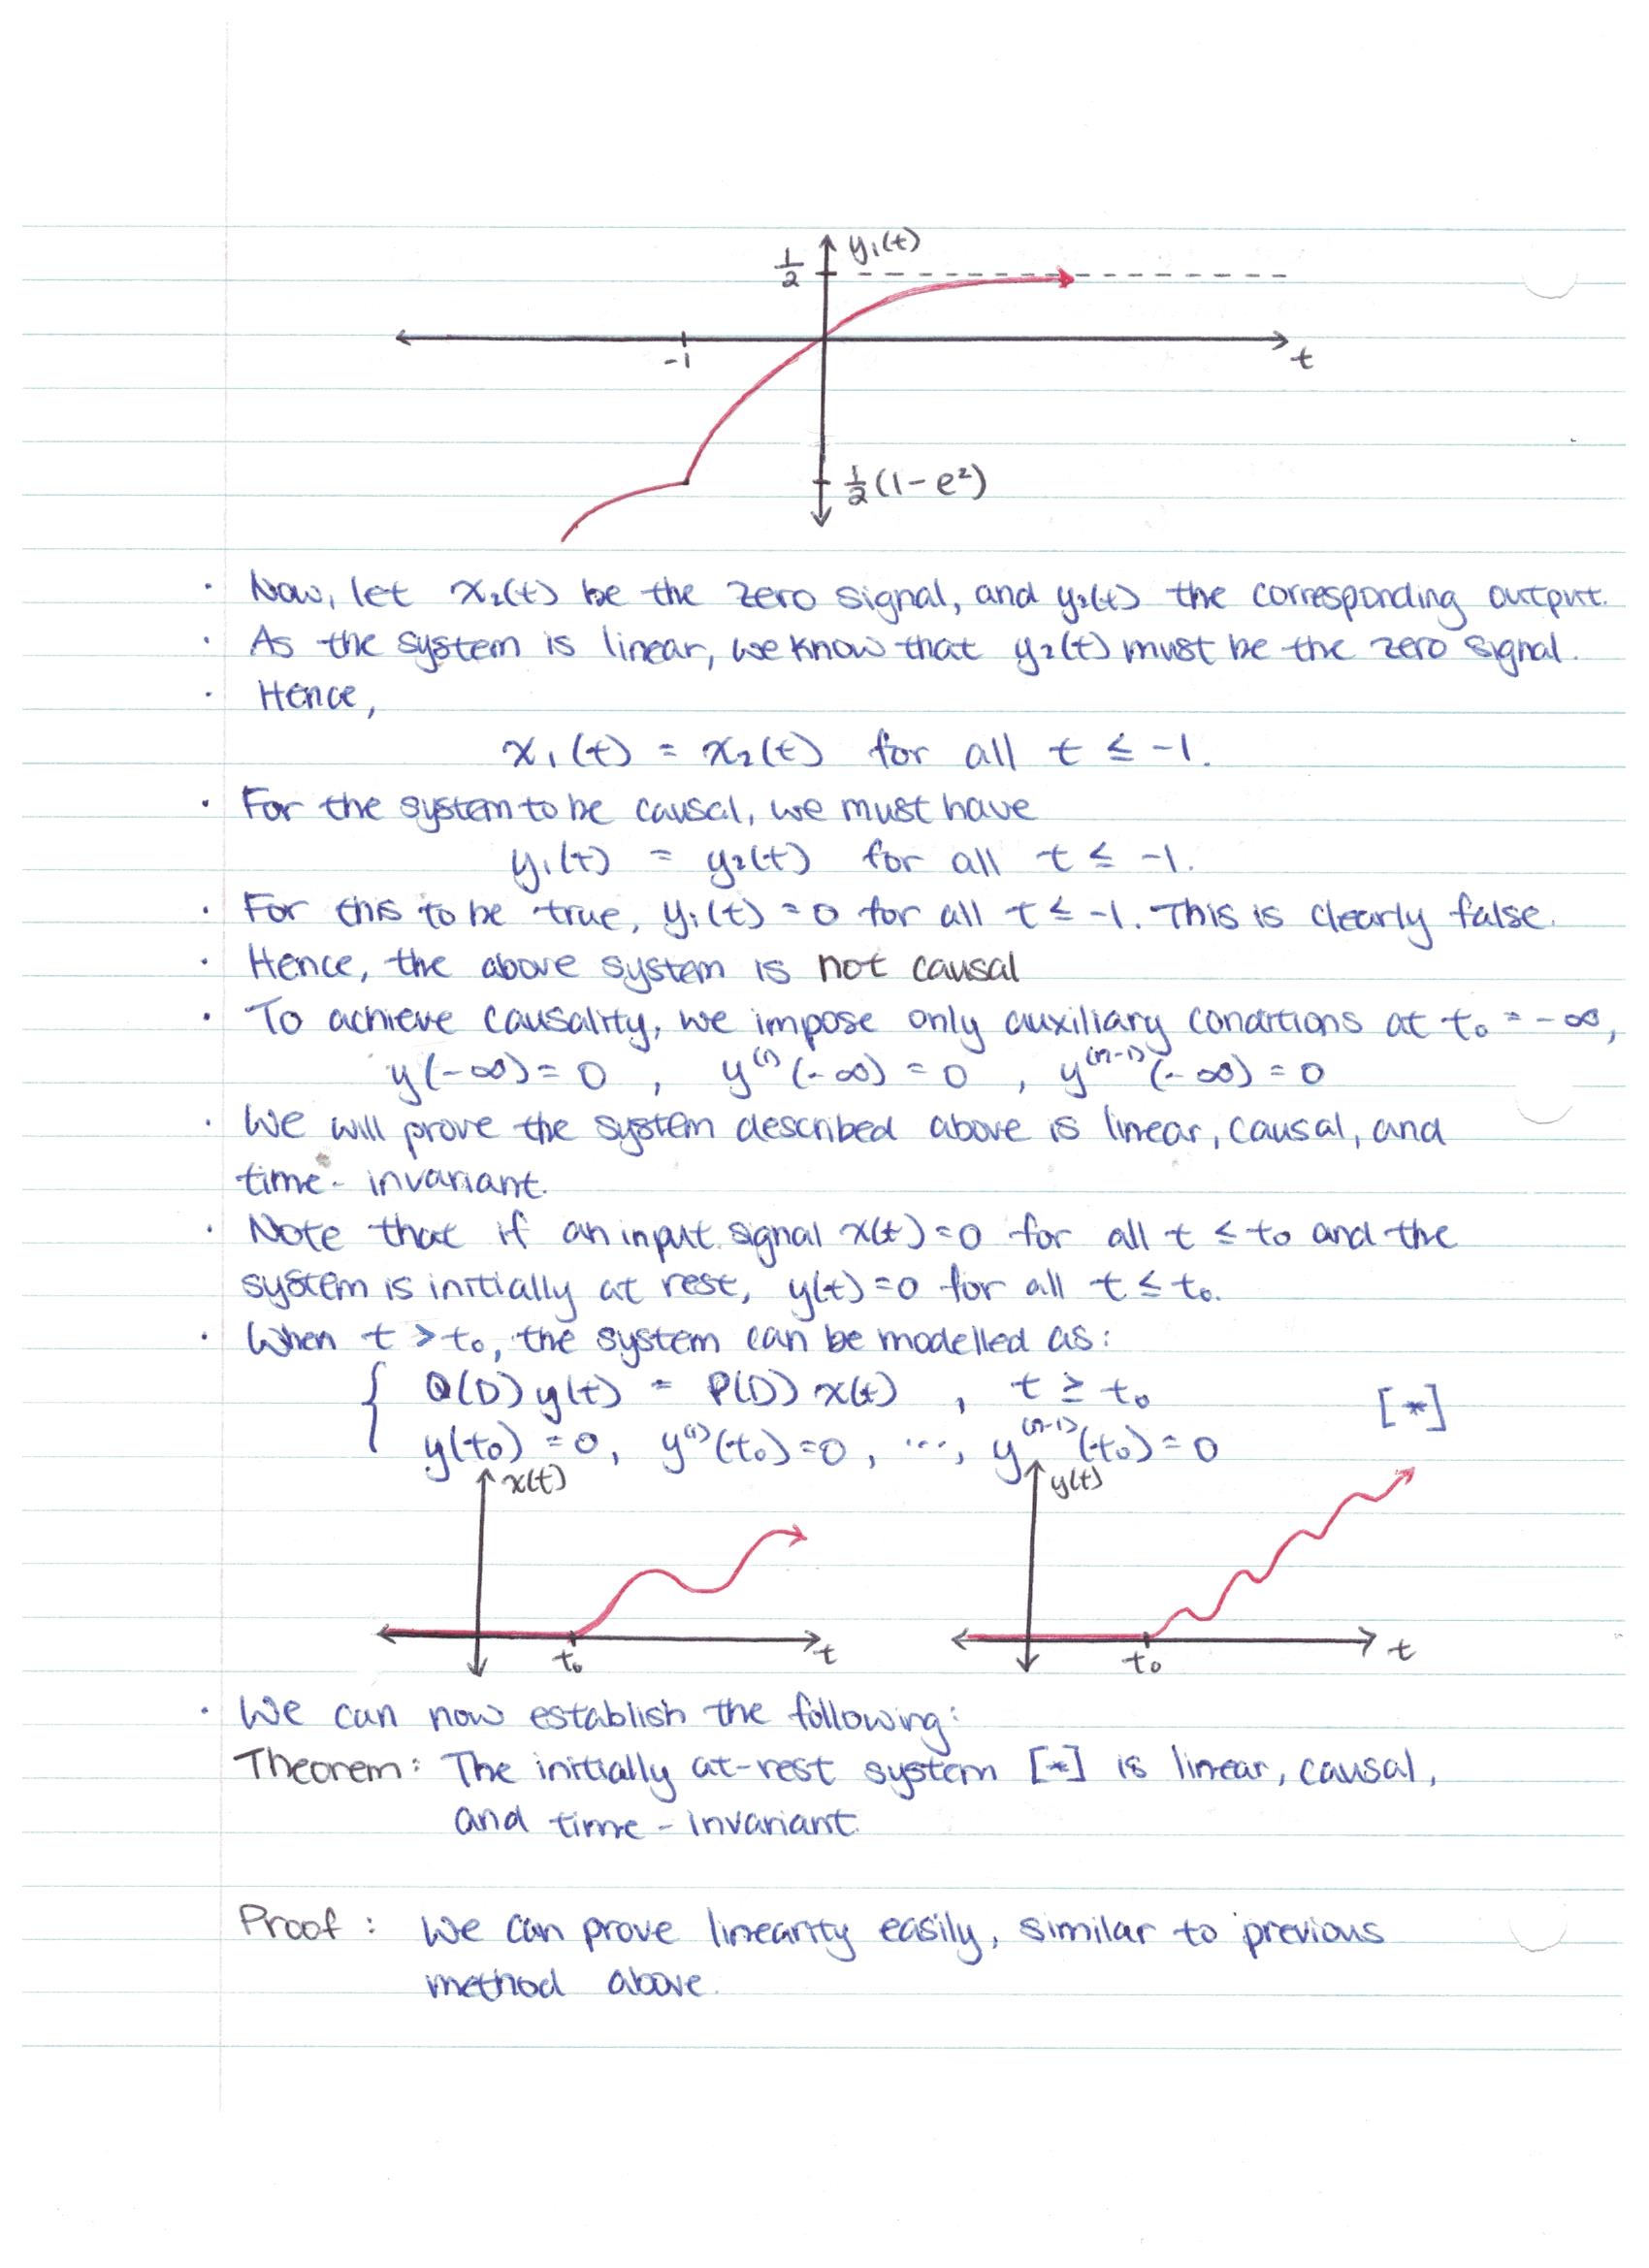 1/2 y₁(t)
-1 t
1/2 (1-e²)
· Now, let x₂(t) be the zero signal, and y₂(t) the corresponding output.
· As the system is linear, we know that y₂(t) must be the zero signal.
· Hence,
x₁(t) = x₂(t) for all t ≤ -1.
· For the system to be causal, we must have
y₁(t) = y₂(t) for all t ≤ -1.
· For this to be true, y₁(t) = 0 for all t ≤ -1. This is clearly false.
· Hence, the above system is not causal
· To achieve causality, we impose only auxiliary conditions at t₀ = -∞,
y(-∞) = 0 , y⁽¹⁾(-∞) = 0 , y⁽ⁿ⁻¹⁾(-∞) = 0
· We will prove the system described above is linear, causal, and
time-invariant.
· Note that if an input signal x(t)=0 for all t ≤ t₀ and the
system is initially at rest, y(t)=0 for all t ≤ t₀.
· When t > t₀, the system can be modelled as:
{ Q(D) y(t) = P(D) x(t) , t ≥ t₀ [*]
y(t₀) = 0, y⁽¹⁾(t₀) = 0, ..., y⁽ⁿ⁻¹⁾(t₀) = 0
x(t) y(t)
t₀ t t₀ t
· We can now establish the following:
Theorem: The initially at-rest system [*] is linear, causal,
and time-invariant.
Proof: We can prove linearity easily, similar to previous
method above.